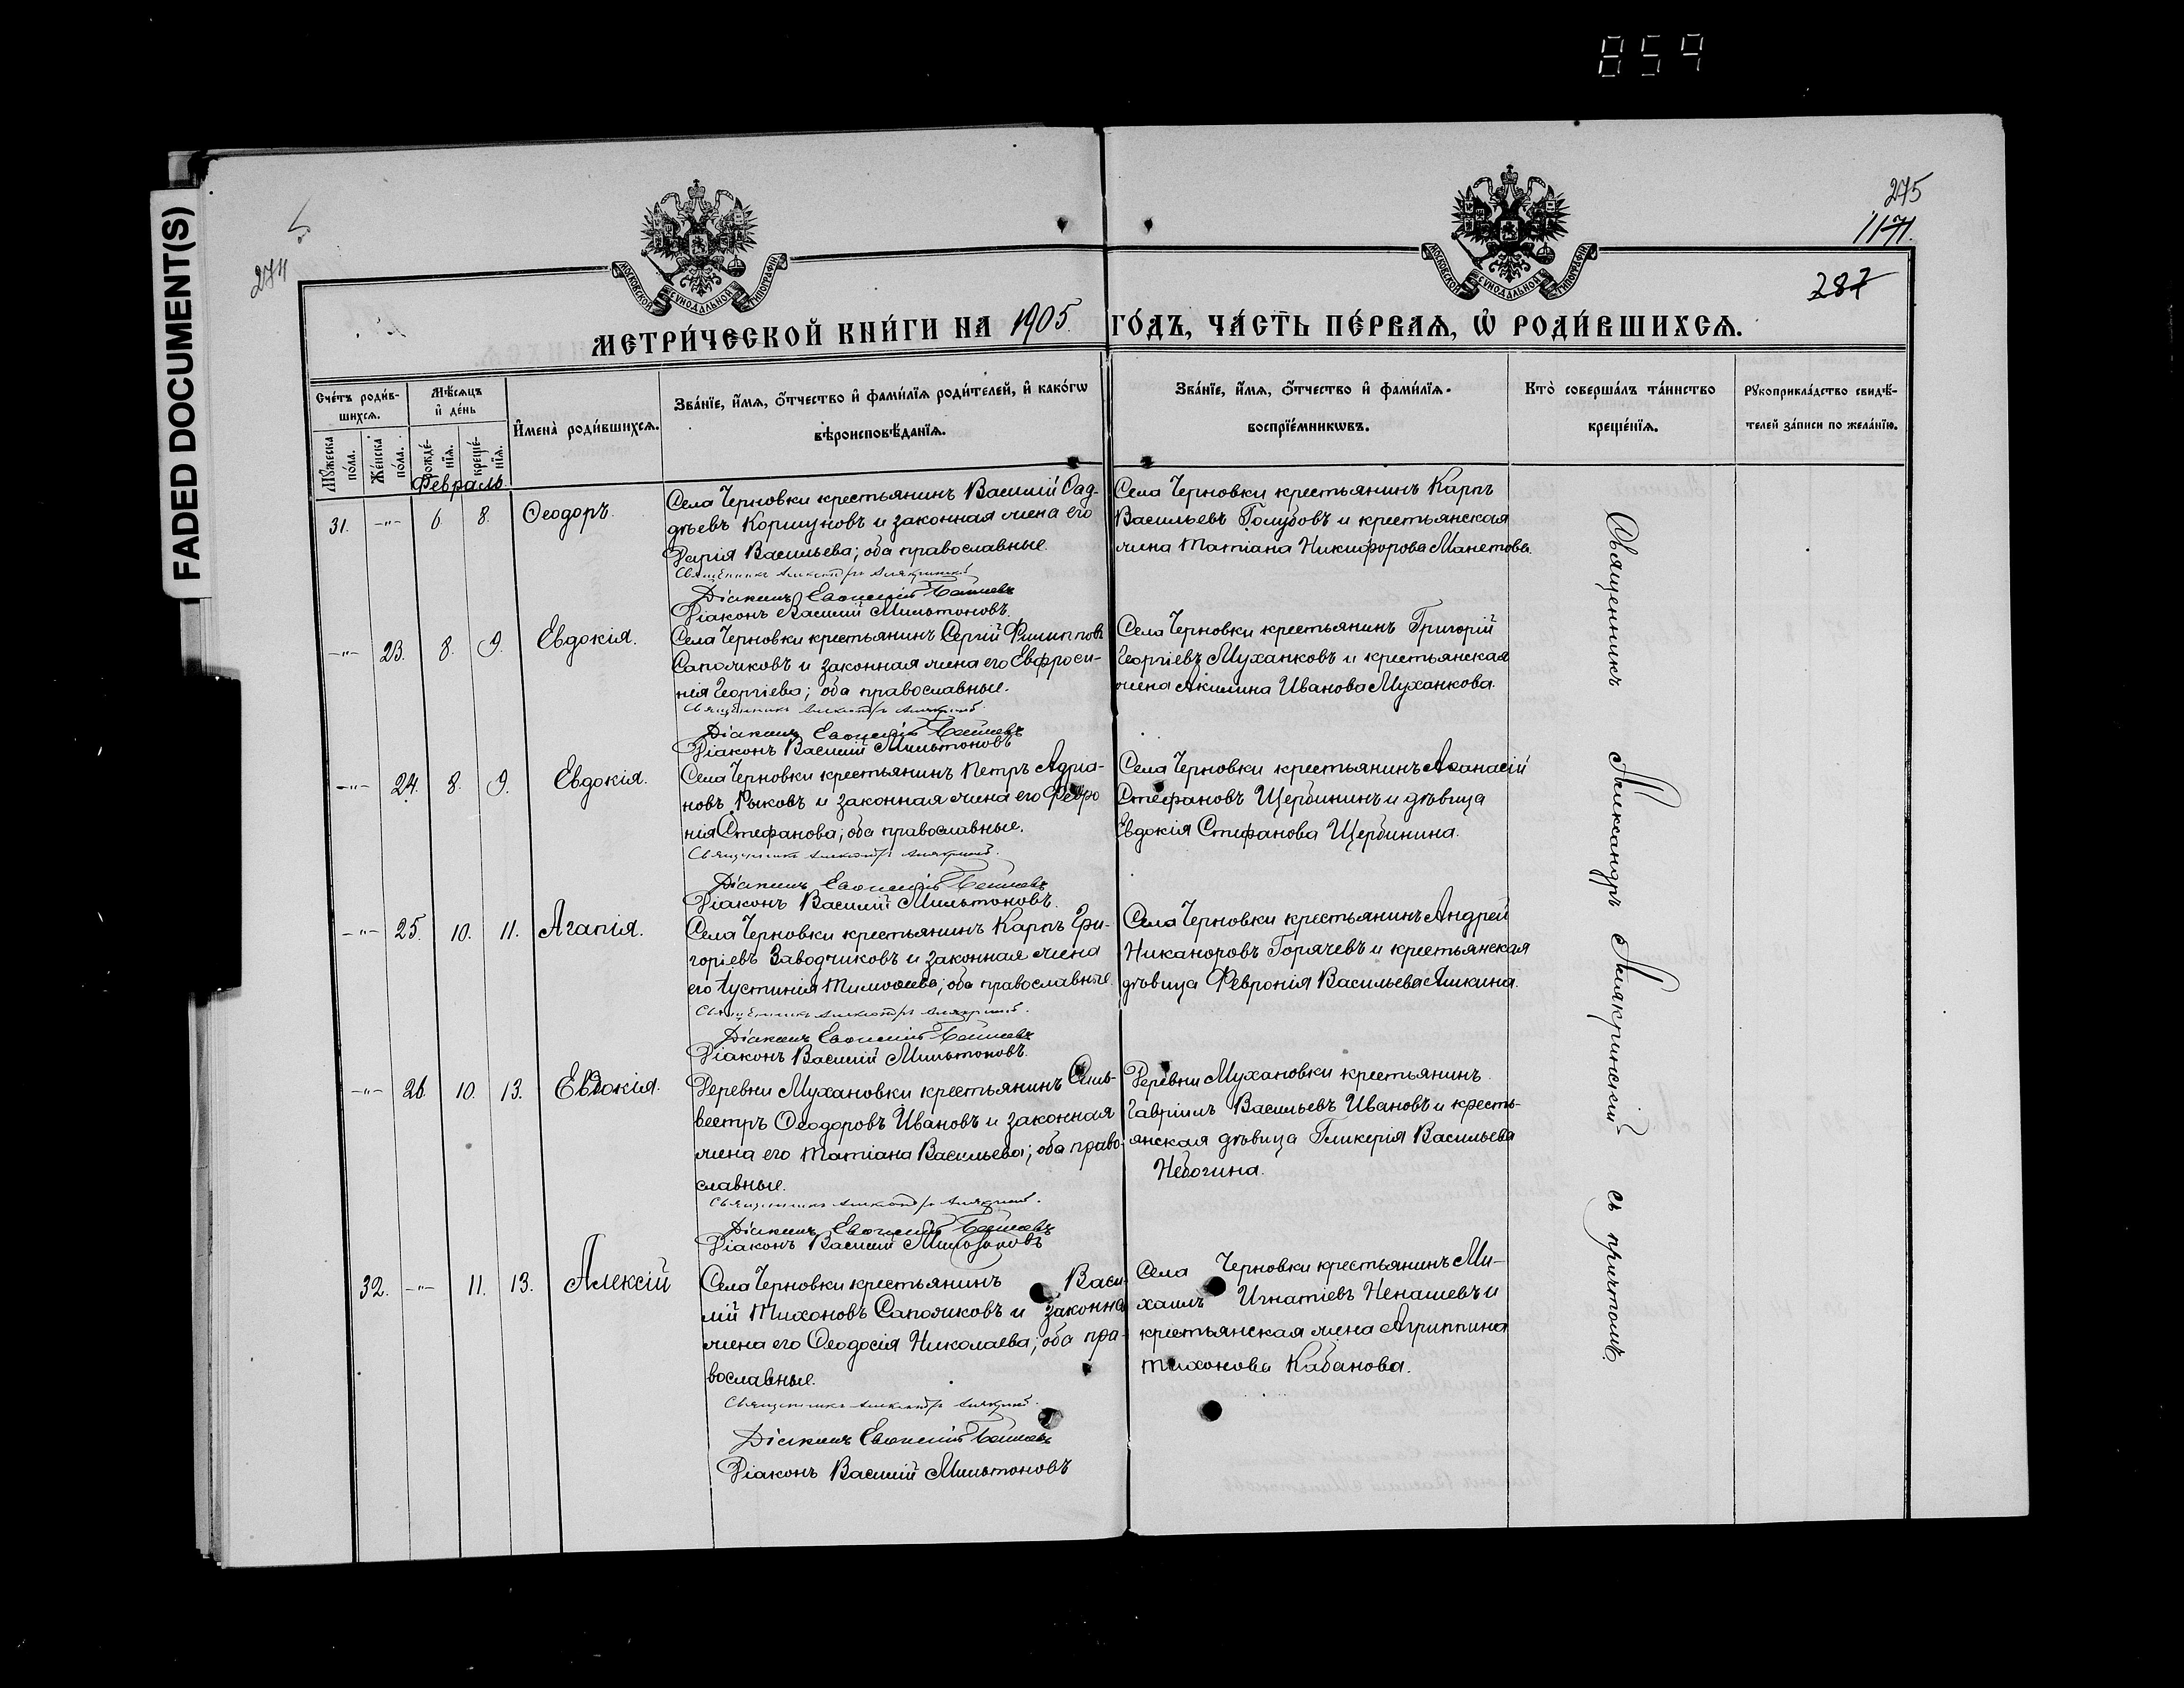 859
FADED DOCUMENT(S)
274
275
1171.
287
МОСКОВСКОЙ СѴНОДАЛЬНОЙ ТИПОГРАФІИ
МОСКОВСКОЙ СѴНОДАЛЬНОЙ ТИПОГРАФІИ
МЕТРИ́ЧЕСКОЙ КНИ́ГИ НА 1905. ГО́ДЪ, ЧА́СТЬ ПЕ́РВАѦ, Ѡ҆ РОДИ́ВШИХСѦ.
Сче́тъ роди́в-
шихсѧ.
Мꙋ́жеска по́ла.
Же́нска по́ла.
Мѣ́сѧцъ
и҆ де́нь
рожде́-
нїѧ.
креще́-
нїѧ.
И҆мена̀ роди́вшихсѧ.
Зва́нїе, и҆́мѧ, ѻ҆́тчество и҆ фами́лїѧ роди́телей, и҆ како́гѡ
вѣроисповѣ́данїѧ.
Зва́нїе, и҆́мѧ, ѻ҆́тчество и҆ фами́лїѧ
воспрїе́мникѡвъ.
Кто̀ соверша́лъ та́инство
креще́нїѧ.
Рꙋкоприкла́дство свидѣ́-
телей за́писи по жела́нїю.
Февраль
31. -"- 6. 8. Ѳеодоръ.
Села Черновки крестьянинъ Василій Ѳад-
дѣевъ Коршуновъ и законная жена его
Дарія Васильева; оба православные.
Священникъ Александръ Алякринскій
Діаконъ Евѳимій
Діаконъ Василій Мильтоновъ.
Села Черновки крестьянинъ Карпъ
Васильевъ Голубовъ и крестьянская
жена Татіана Никифорова Манетова.
-"- 23. 8. 9. Евдокія.
Села Черновки крестьянинъ Сергій Филипповъ
Сапожковъ и законная жена его Евфроси-
нія Георгіева; оба православные.
Священникъ Александръ Алякринскій
Діаконъ Евѳимій
Діаконъ Василій Мильтоновъ
Села Черновки крестьянинъ Григорій
Георгіевъ Муханковъ и крестьянская
жена Акилина Иванова Муханкова.
-"- 24. 8. 9. Евдокія.
Села Черновки крестьянинъ Петръ Адріа-
новъ Рыковъ и законная жена его Февро
нія Стефанова; оба православные.
Священникъ Александръ Алякринскій
Діаконъ Евѳимій
Діаконъ Василій Мильтоновъ.
Села Черновки крестьянинъ Аѳанасій
Стефановъ Щербининъ и дѣвица
Евдокія Стефанова Щербинина.
-"- 25. 10. 11. Агапія.
Села Черновки крестьянинъ Карпъ Гри-
горіевъ Заводчиковъ и законная жена
его Іустинія Тимоѳеева; оба православные.
Священникъ Александръ Алякринскій
Діаконъ Евѳимій
Діаконъ Василій Мильтоновъ.
Села Черновки крестьянинъ Андрей
Никаноровъ Горячевъ и крестьянская
дѣвица Февронія Васильева Ямкина.
-"- 26. 10. 13. Евдокія.
Деревни Мухановки крестьянинъ Силь-
вестръ Ѳеодоровъ Ивановъ и законная
жена его Татіана Васильева; оба право-
славные.
Священникъ Александръ Алякринскій
Діаконъ Евѳимій
Діаконъ Василій Мильтоновъ
Деревни Мухановки крестьянинъ
Гавріилъ Васильевъ Ивановъ и кресть-
янская дѣвица Гликерія Васильева
Небогина.
32. -"- 11. 13. Алексій
Села Черновки крестьянинъ Васи-
лій Тихоновъ Сапожковъ и законна
жена его Ѳеодосія Николаева; оба пра-
вославные.
Священникъ Александръ Алякринскій
Діаконъ Евѳимій
Діаконъ Василій Мильтоновъ
Села Черновки крестьянинъ Ми-
хаилъ Игнатіевъ Ненашевъ и
крестьянская жена Агриппина
Тихонова Кабанова.
Священникъ Александръ Алякринскій съ причтомъ.